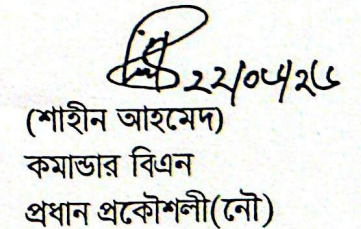 ২২/০৬/২৬
(শাহীন আহমেদ)
কমান্ডার বিএন
প্রধান প্রকৌশলী(নৌ)